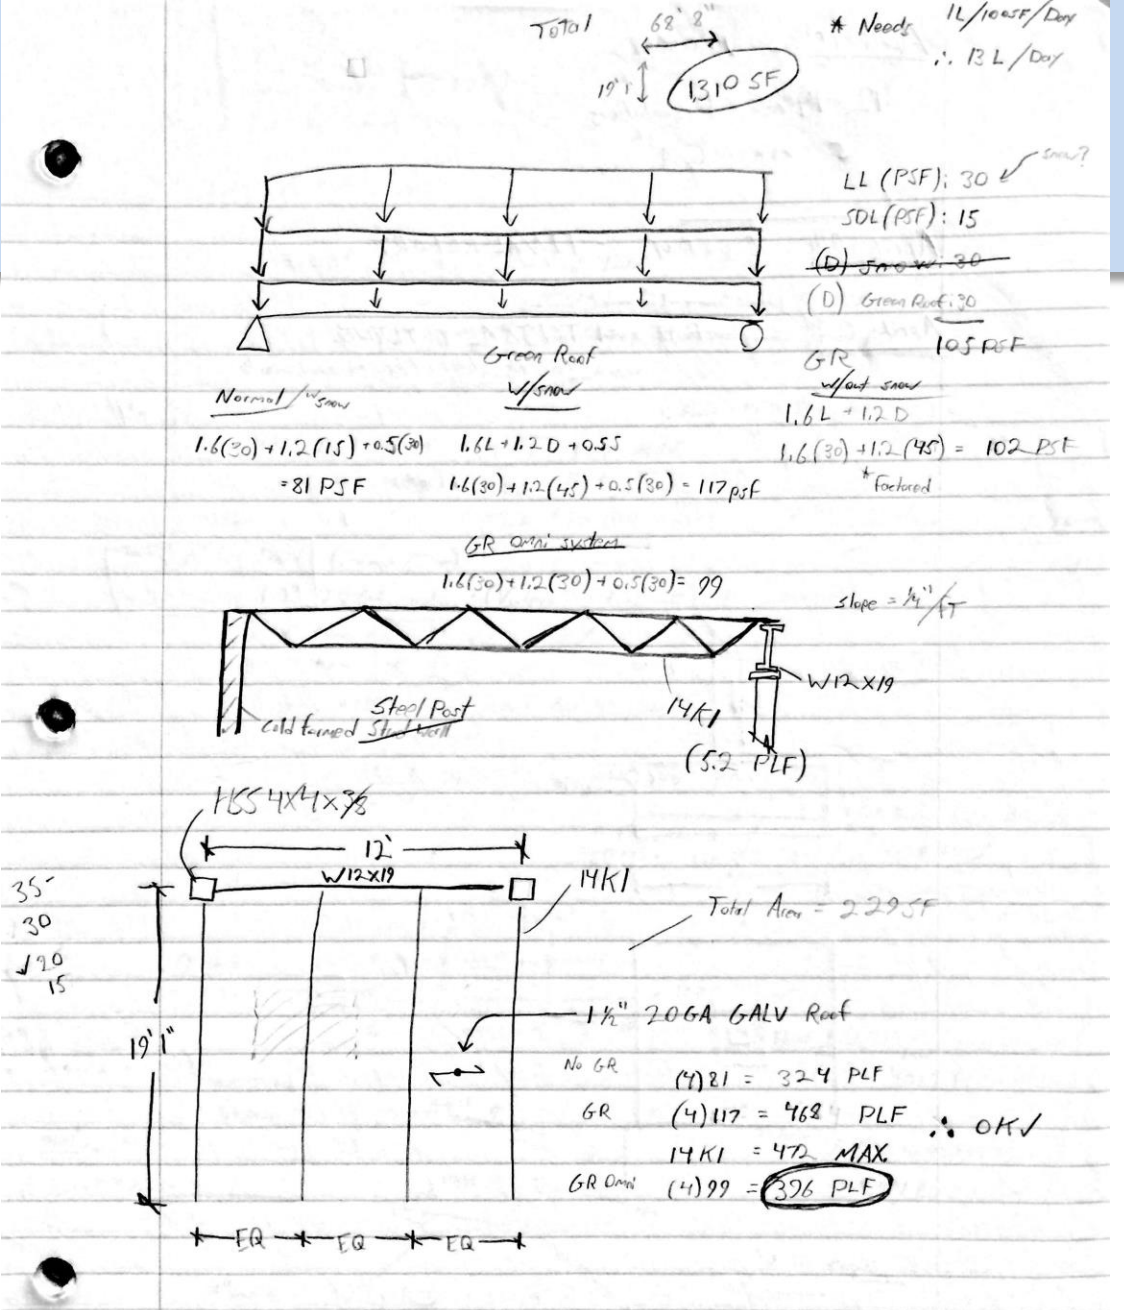 Total 68' 8"
19' 1"
1310 SF
* Needs 1L/100SF/Day
∴ 13 L/Day
LL (PSF): 30 snow?
SDL (PSF): 15
(D) Snow: 30
(D) Green Roof: 30
105 PSF
Normal / w snow
1.6(30) + 1.2(15) + 0.5(30)
= 81 PSF
Green Roof
W/snow
1.6L + 1.2D + 0.5S
1.6(30) + 1.2(45) + 0.5(30) = 117 psf
GR
w/out snow
1.6L + 1.2D
1.6(30) + 1.2(45) = 102 PSF
* Factored
GR Omni system
1.6(30) + 1.2(30) + 0.5(30) = 99
slope = 1/4"/FT
W12X19
14K1
(5.2 PLF)
Steel Post
Cold formed Stud wall
HSS 4X4X3/8
12'
W12X19
14K1
35-
30
√20
15
19' 1"
Total Area = 229SF
1 1/2" 20GA GALV Roof
No GR (4)81 = 324 PLF
GR (4)117 = 468 PLF ∴ OK✓
14K1 = 472 MAX.
GR Omni (4)99 = 396 PLF
EQ EQ EQ